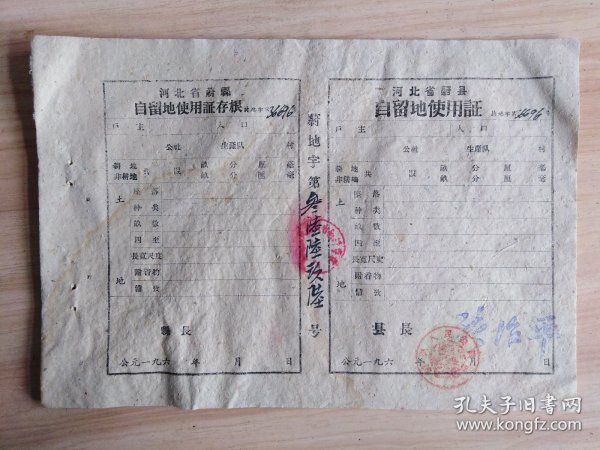 河北省蔚縣
自留地使用証存根
戶主 人口
公社 生產队 村
耕地
非耕地 共 畝 分 厘 毫
畝 分 厘 毫
土地
座落
种类
畝数
四至
長寬尺度
附着物
備攷
縣長
公元一九六 年 月 日
耕地字第叁陸陸玖陸号
河北省蔚县
自留地使用証
戶主 人口
公社 生產队 村
耕地
非耕地 共 畝 分 厘 毫
畝 分 厘 毫
土地
座落
种类
畝数
四至
長寬尺度
附着物
備攷
县長
公元一九六 月 日
孔夫子旧书网
www.kongfz.com